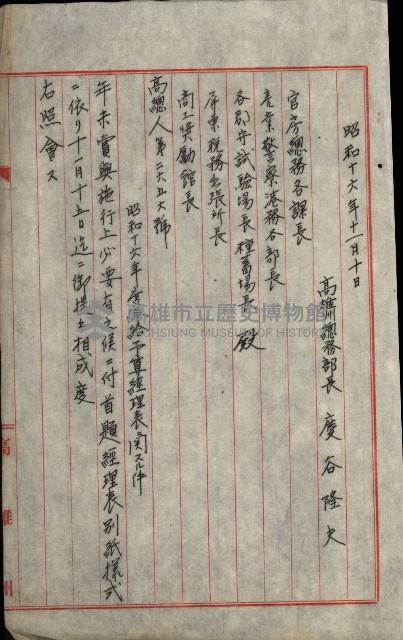 昭和十六年十一月十日
高雄州總務部長 廣谷隆夫
官房總務各課長
產業警察港務各部長
各郡守試驗場長種畜場長 殿
屏東稅務出張所長
商工獎勵館長
高總人第二六五六號
昭和十六年度給予算經理表ニ關スル件
年末賞與施行上必要有之候ニ付首題經理表別紙樣式
ニ依リ十一月十五日迄ニ御提出相成度
右照會ス
高雄州
高雄市立歷史博物館
KAOHSIUNG MUSEUM OF HISTORY